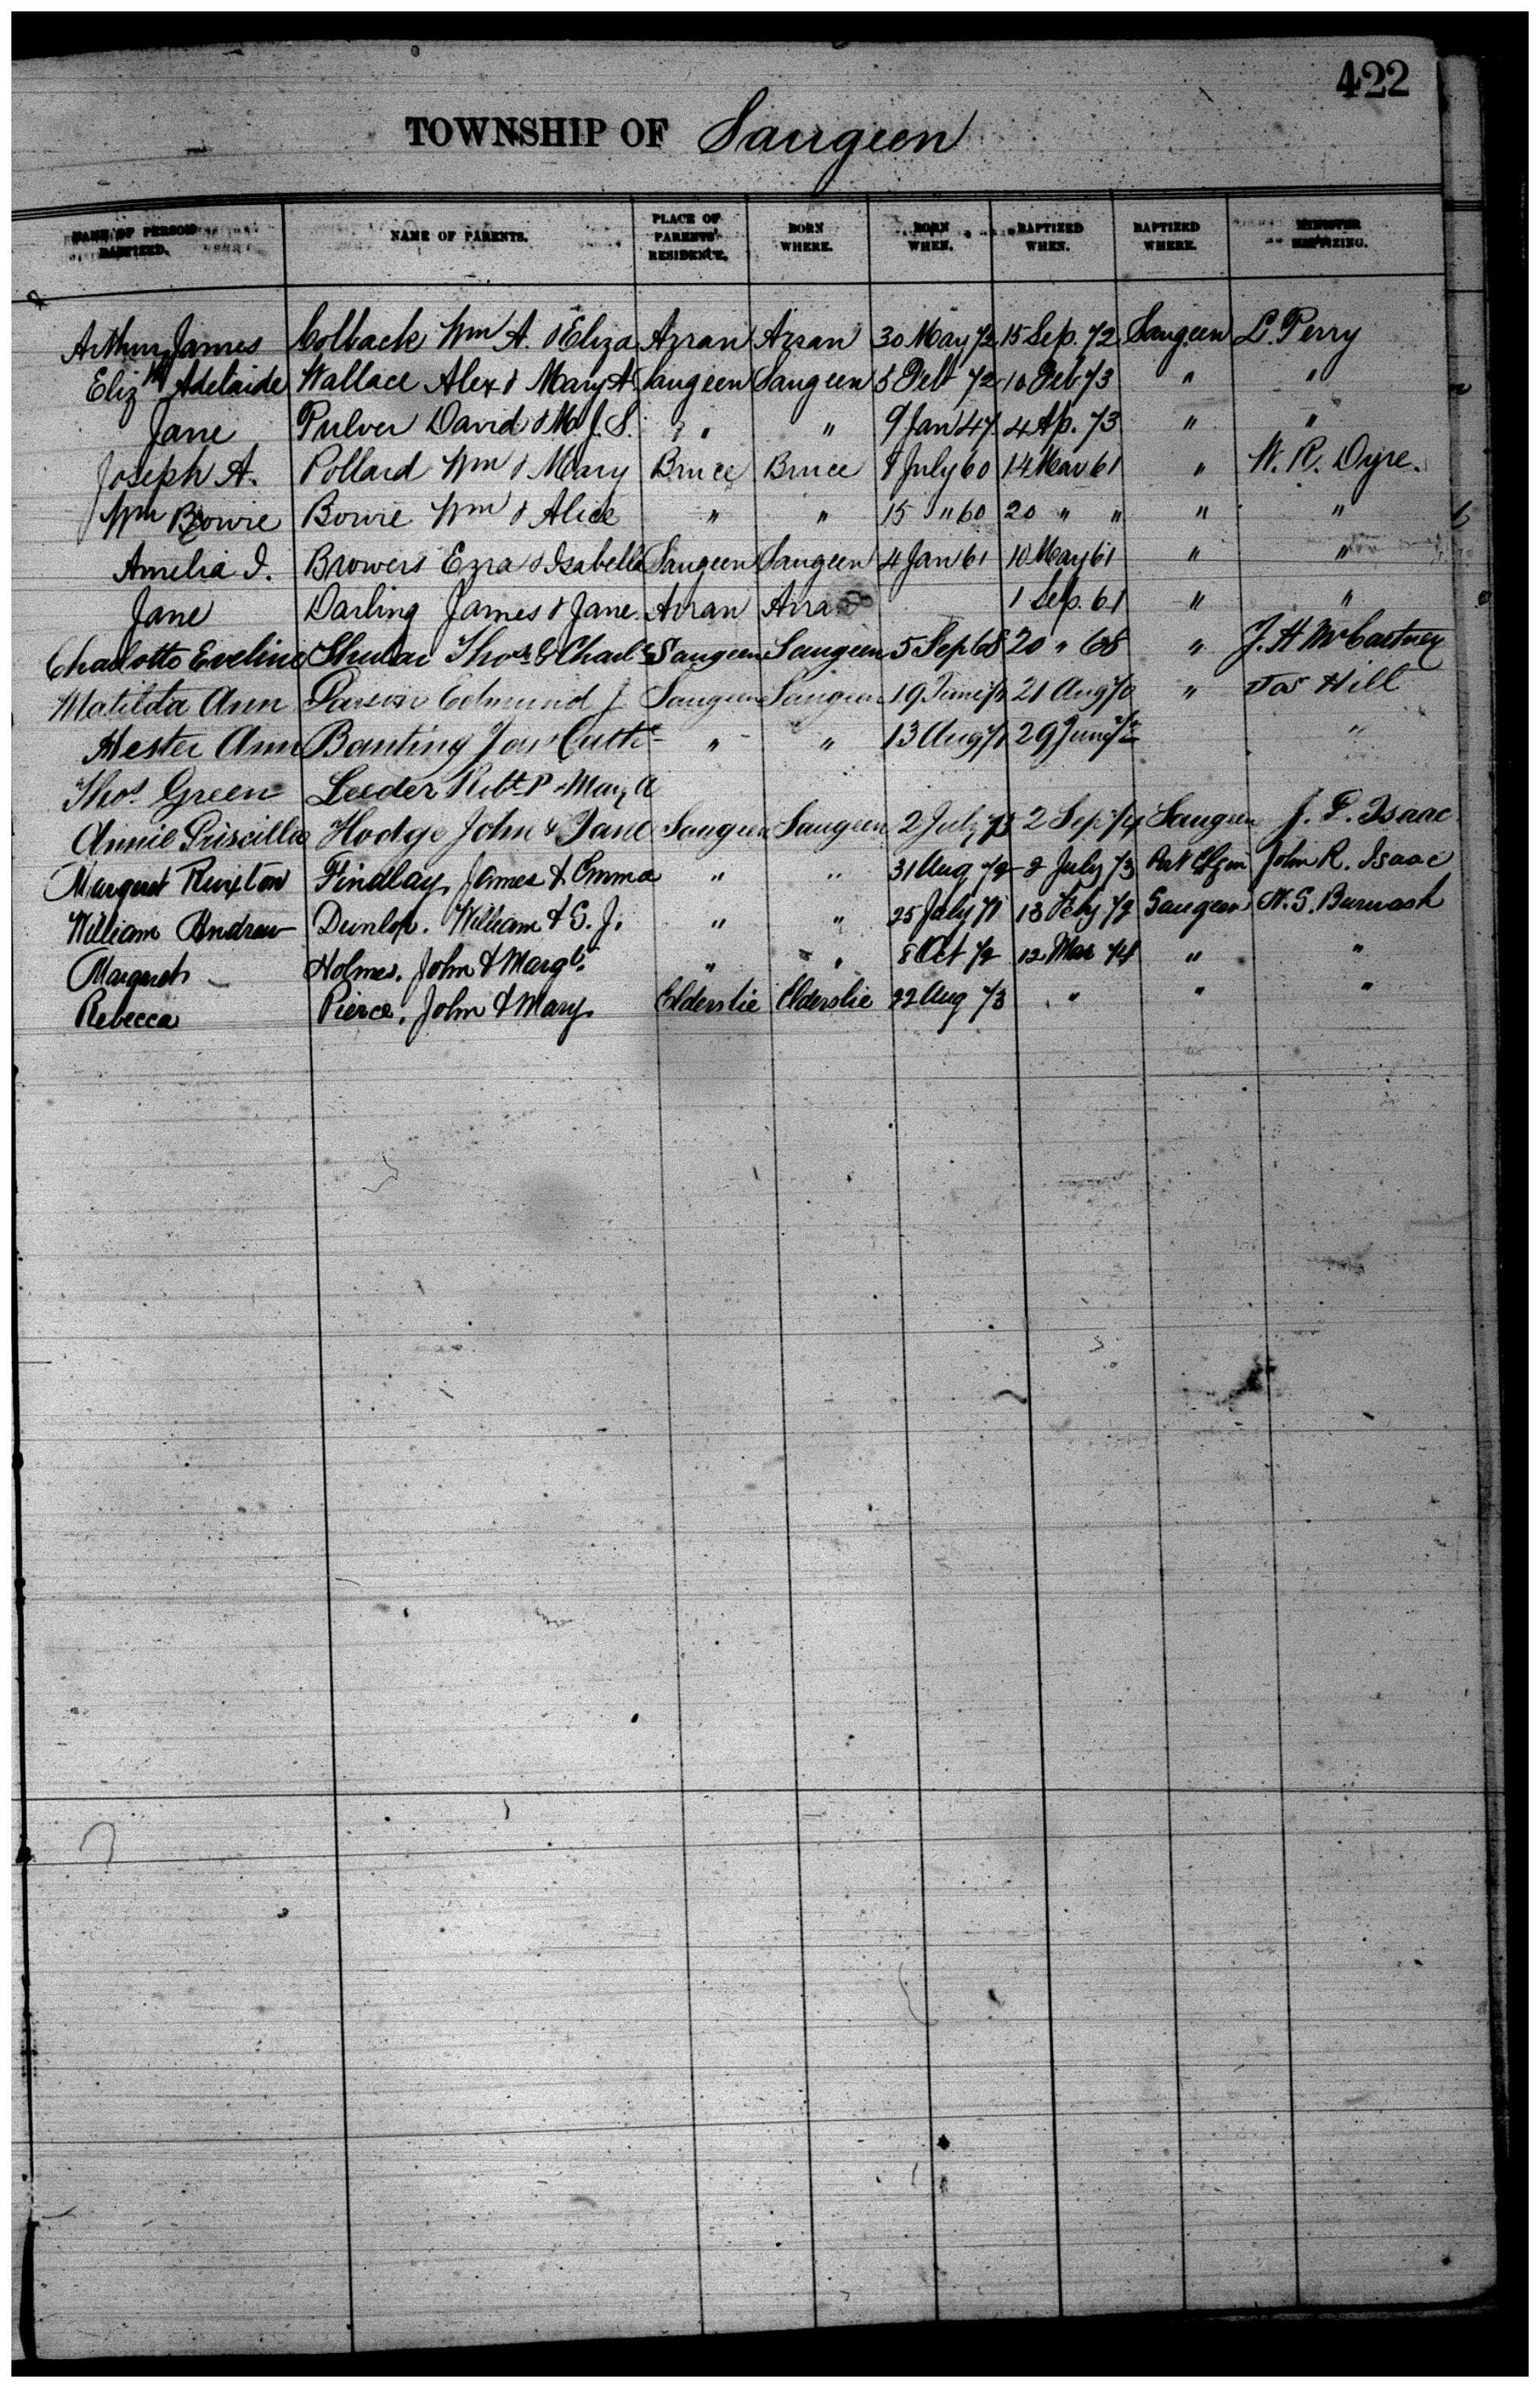 422
TOWNSHIP OF Saugeen
NAME OF PERSON BAPTIZED. NAME OF PARENTS. PLACE OF PARENTS' RESIDENCE. BORN WHERE. BORN WHEN. BAPTIZED WHEN. BAPTIZED WHERE. MINISTER BAPTIZING.
Arthur James Colback Wm A. & Eliza Arran Arran 30 May 72 15 Sep. 72 Saugeen L. Perry
Elizth Adelaide Wallace Alex & Mary A. Saugeen Saugeen 5 72 10 Feb 73 " "
Jane Pulver David & M. J. S. " " 9 Jan 47 4 Ap. 73 " "
Joseph A. Pollard Wm & Mary Bruce Bruce 8 July 60 14 Mar 61 " W. R. Dyre.
Wm Bowie Bowie Wm & Alice " " 15 " 60 20 " " " "
Amelia I. Browers Ezra & Isabella Saugeen Saugeen 4 Jan 61 10 May 61 " "
Jane Darling James & Jane. Arran Arran 1 Sep. 61 " "
Charlotte Eveline Thos & Saugeen Saugeen 5 Sep 68 20 " 68 " J. H McCartney
Matilda Ann Edmund J Saugeen Saugeen 19 June 21 Aug 70 " Jas Hill
Hester Ann Banting Jas Cath " " 13 Aug 71 29 June "
Thos. Green Leeder Robt P Mary A
Annie Priscilla Hodge John & Jane Saugeen Saugeen 2 July 73 2 Sep 74 Saugeen J. R. Isaac
Margaret Ruxton Findlay, James & Emma " " 31 Aug 72 2 July 73 Port Elgin John R. Isaac
William Andrew Dunlop. William & S. J. " " 25 July 71 13 Feby 72 Saugeen N. S. Burwash
Margaret Holmes. John & Margt. " " 8 Oct 72 12 Mar 74 " "
Rebecca Pierce. John & Mary. Elderslie Elderslie 22 Aug 73 " " "